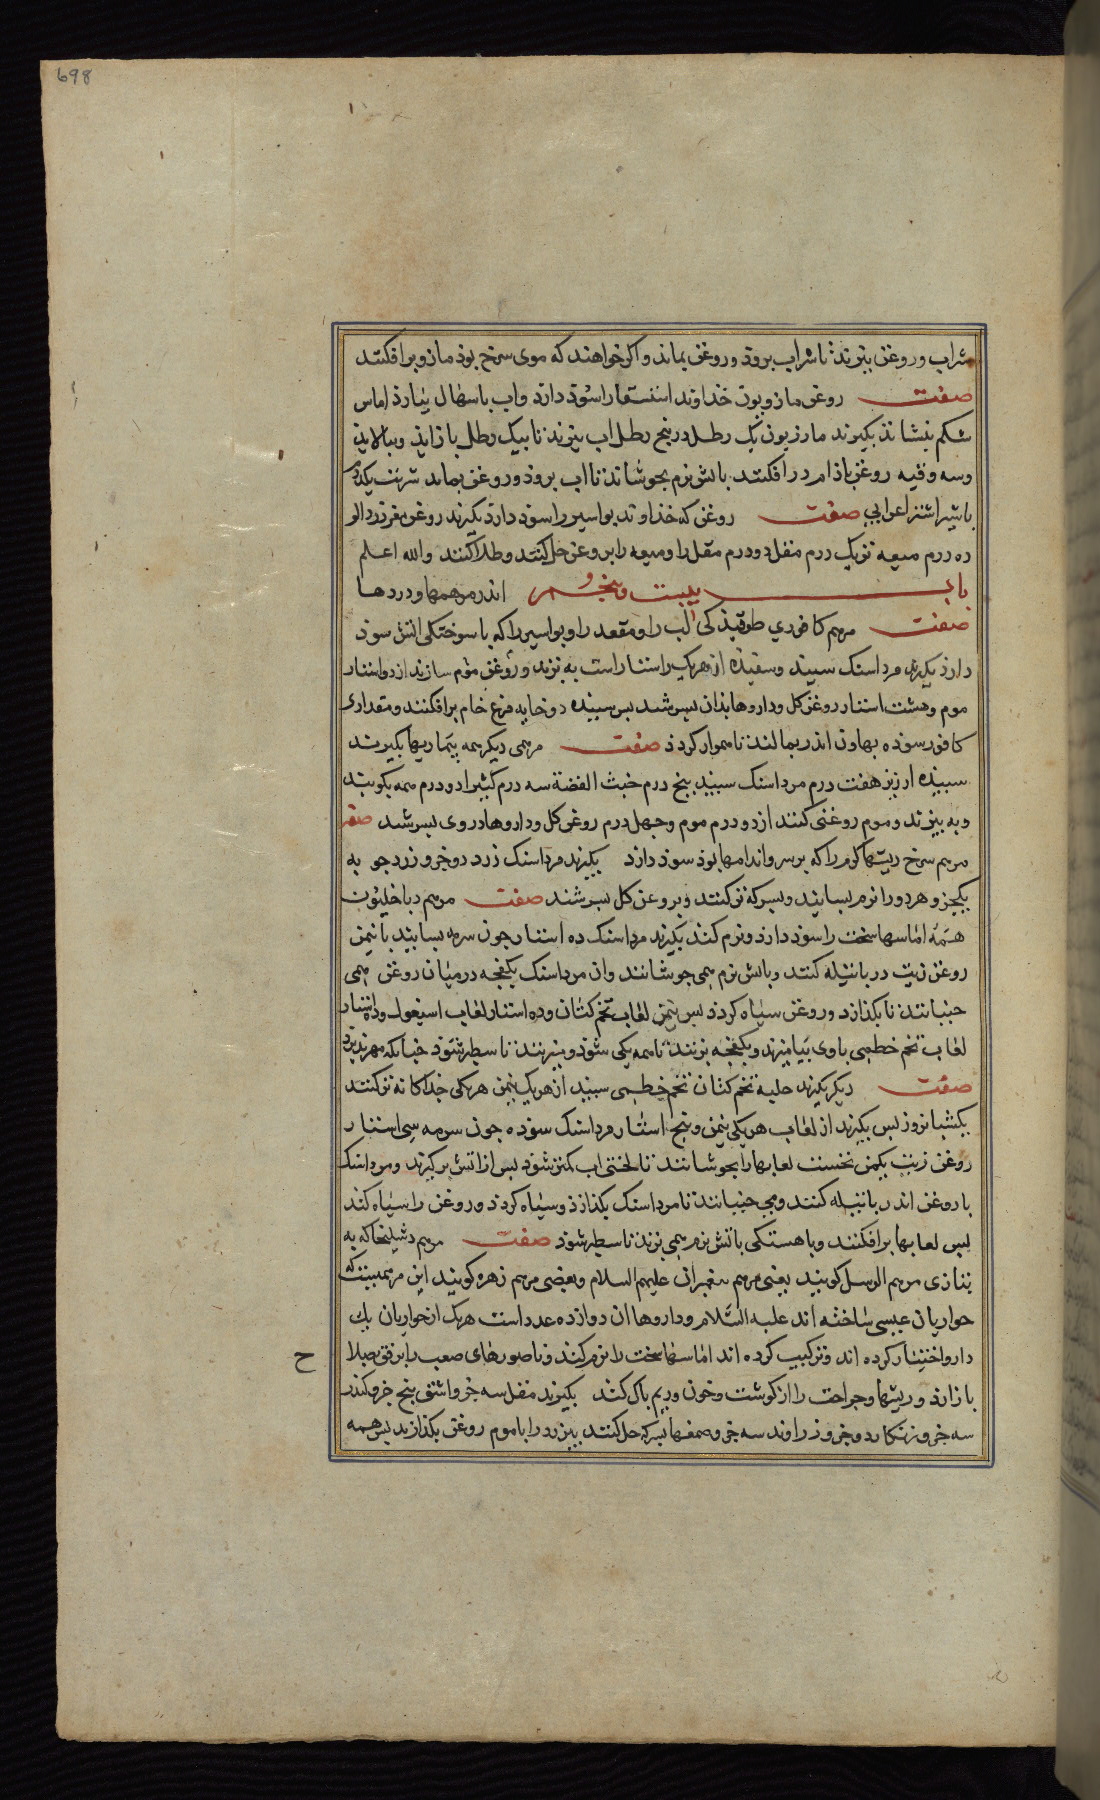 698
شراب و روغن بپزند تا شراب بروذ و روغن بماند و اکر خواهند که موی سرخ بوذ مازو برافکنند
صفت روغن مازریون خداوند استسقا را سوذ دارذ واب باسهال بیارذ اماس
شکم بنشاند بکیرند مازریون یک رطل در پنج رطل اب بپزند تا بیک رطل بازاید و بپالایند
و سه وقیه روغن باذام درافکنند باتش نرم بجوشانند تا اب بروذ و روغن بماند شربت یکدرم
باشیر اشتر اعرابی صفت روغن که خداوند بواسیر را سوذ دارذ بکیرند روغن مغز زردالو
ده درم میعه تر یک درم مقل دو درم مقل را و میعه را بروغن حل کنند و طلا کنند والله اعلم
باب بیست و پنجم اندر مرهمها و دردها
صفت مرهم کافوری طرقیذکی لب را و مقعد را و بواسیر را که با سوختکی اتش سوذ
دارذ بکیرند مرداسنک سپید و سفیذه از هریک راستاراست به بزند و روغن موم سازند از دو استار
موم و هشت استار روغن کل و داروها بذان بسرشند بس سبیذه دو خایه مرغ خام برافکنند و مقداری
کافور سوذه بهاون اندر بمالند تا هموار کردذ صفت مرهمی دیکر همه بیماریها بکیرند
سبیذه ارزیز هفت درم مرداسنک سبیذ پنج درم خبث الفضة سه درم کثیرا دو درم همه بکوبند
و به بیزند و موم روغنی کنند از دو درم موم و چهل درم روغن کل و داروها در وی بسرشند صفت
مرهم سرخ ریشها کرم را که برسر و اندامها بوذ سوذ دارذ بکیرند مرداسنک زرد دو جزو و زردجوبه
یکجزو هر دو را نرم بسایند و بسرکه تر کنند و بروغن کل بسرشند صفت مرهم دیاخلیون
همه اماسها سخت را سوذ دارذ و نرم کند بکیرند مرداسنک ده استار جون سرمه بسایند با نیمن
روغن زیت در باتیله کنند و باتش نرم همی جوشانند و ان مرداسنک بکفجه در میان روغن همی
جنبانند تا بکذازد و روغن سیاه کردذ بس نیمن لعاب تخم کتان و ده استار لعاب اسبغول و ده استار
لعاب تخم خطمی با وی بیامیزند و بکفجه بزنند تا همه یکی شوذ و ببزند تا سطبر شوذ
صفت دیکر بکیرند حلبه تخم کتان تخم خطمی سبید از هر یک نیمن هر یکی جذاکانه تر کنند
یکشبانروز بس بکیرند از لعاب هر یکی نیمن و پنج استار مرداسنک سوذه جون سرمه سی استار
روغن زیت یکمن نخست لعابها را بجوشانند تا لختی اب کمتر شوذ بس از اتش برکیرند و مرداسنک
با روغن اندر باتیله کنند و می جنبانند تا مرداسنک بکذازذ و سیاه کردذ و روغن را سیاه کند
بس لعابها برافکنند و باهستکی باتش نرم همی بزند تا سطبر شوذ صفت مرهم دشلیخا که به
بتازی مرهم الرسل کویند یعنی مرهم پیغمبران علیهم السلام و بعضی مرهم زهره کویند این مرهمیست که
حواریان عیسی ساخته اند علیه السلام و داروها ان دوازده عدد است هر یک از حواریان یک
دارو اختیار کرده اند و ترکیب کرده اند اماسها سخت را نرم کند و ناصورهای صعب را برفق بصلاح
بازارد و ریشها و جراحت را از کوشت و خون و ریم باک کند بکیرند مقل سه جزو اشق پنج جزو کندر
سه جزو زنکار دو جزو زراوند سه جزو صمغها بسرکه حل کنند بیرزد را با موم روغن بکذازند بس همه
ح